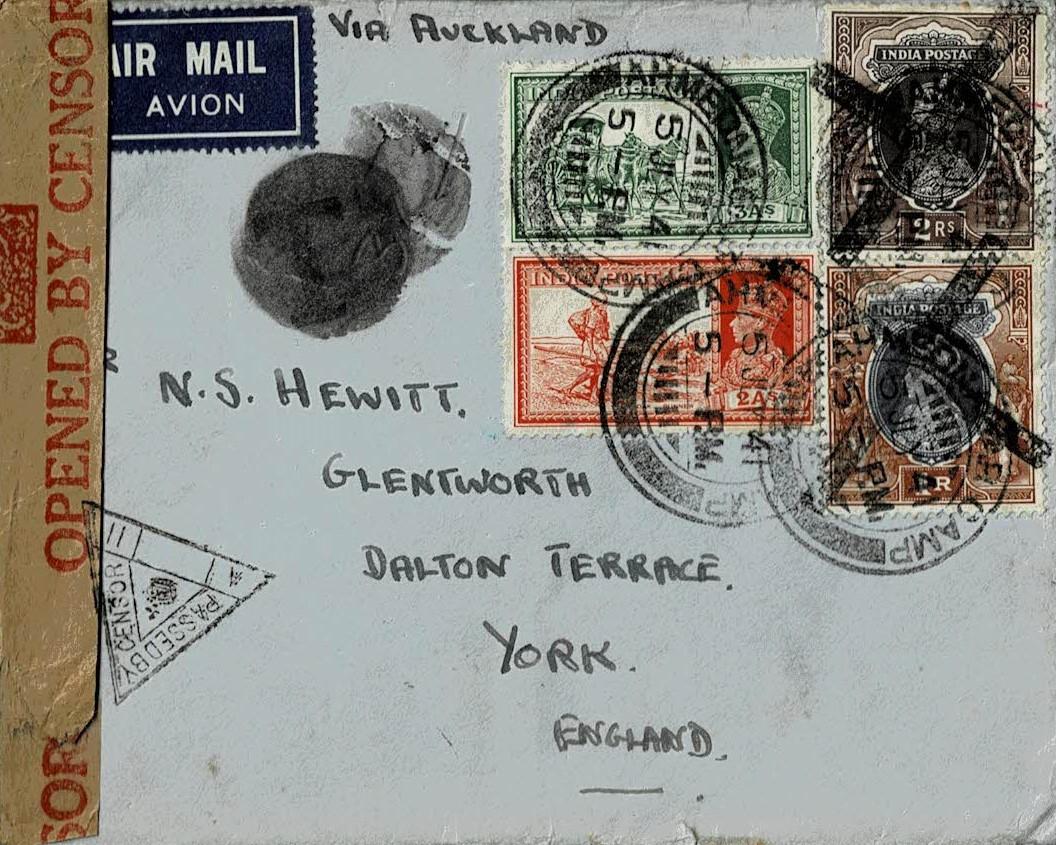 VIA AUCKLAND
AIR MAIL
AVION
OPENED BY CENSOR
SOR
INDIA POSTAGE
3AS
INDIA POSTAGE
2 RS
INDIA POSTAGE
2AS
INDIA POSTAGE
1 R
5 - P.M.
CAMP
N.S. HEWITT.
GLENTWORTH
DALTON TERRACE.
YORK.
ENGLAND.
PASSED BY
CENSOR